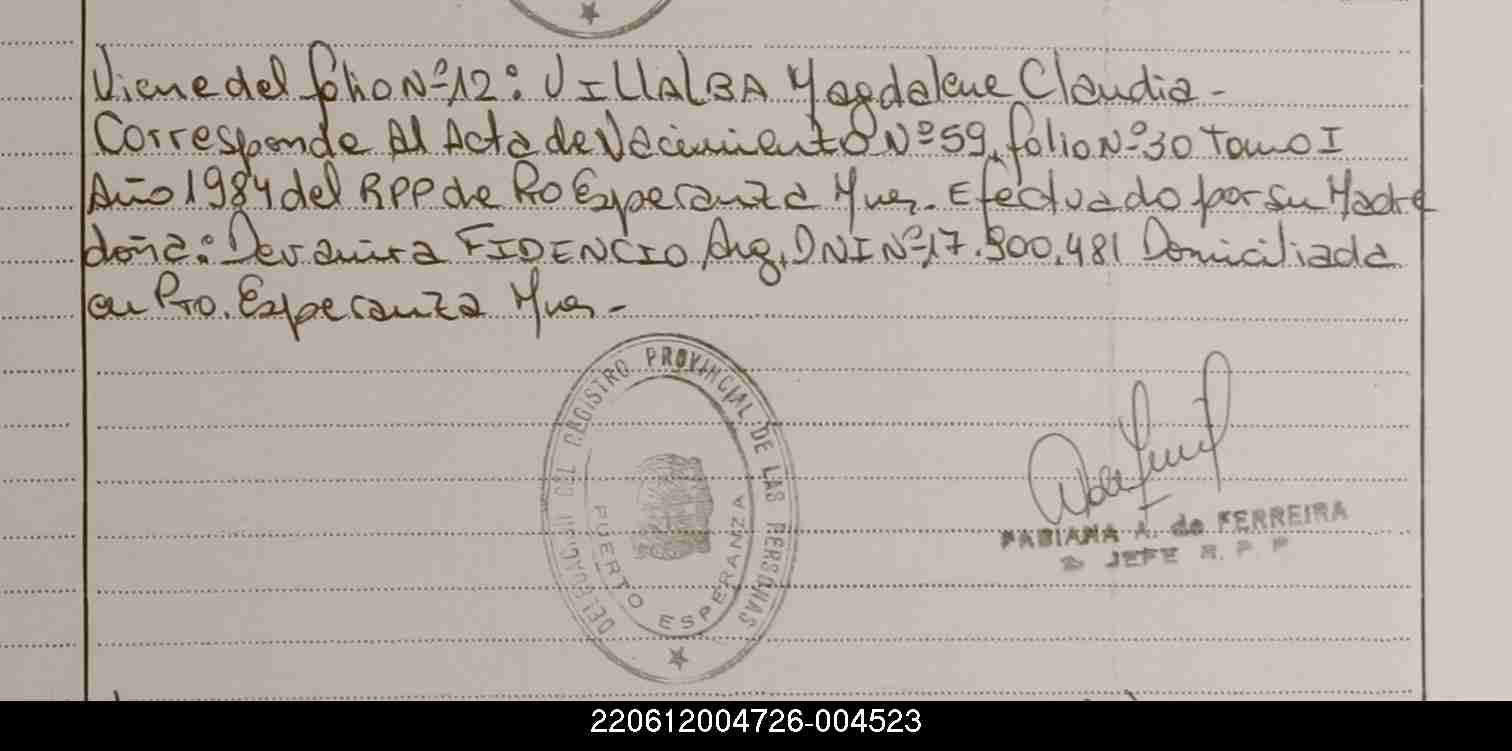 Viene del folio Nº 12: VILLALBA Magdalena Claudia -
Corresponde Al Acta de Nacimiento Nº 59, folio Nº 30 Tomo I
Año 1984 del RPP de Pto Esperanza Mnes. Efectuado por su Madre
doña: Devanira FIDENCIO, Arg. DNI Nº 17.900.481 Domiciliada
en Pto. Esperanza Mnes -
DELEGACION DEL REGISTRO PROVINCIAL DE LAS PERSONAS
PUERTO ESPERANZA
FABIANA A. de FERREIRA
JEFE R. P. P
220612004726-004523